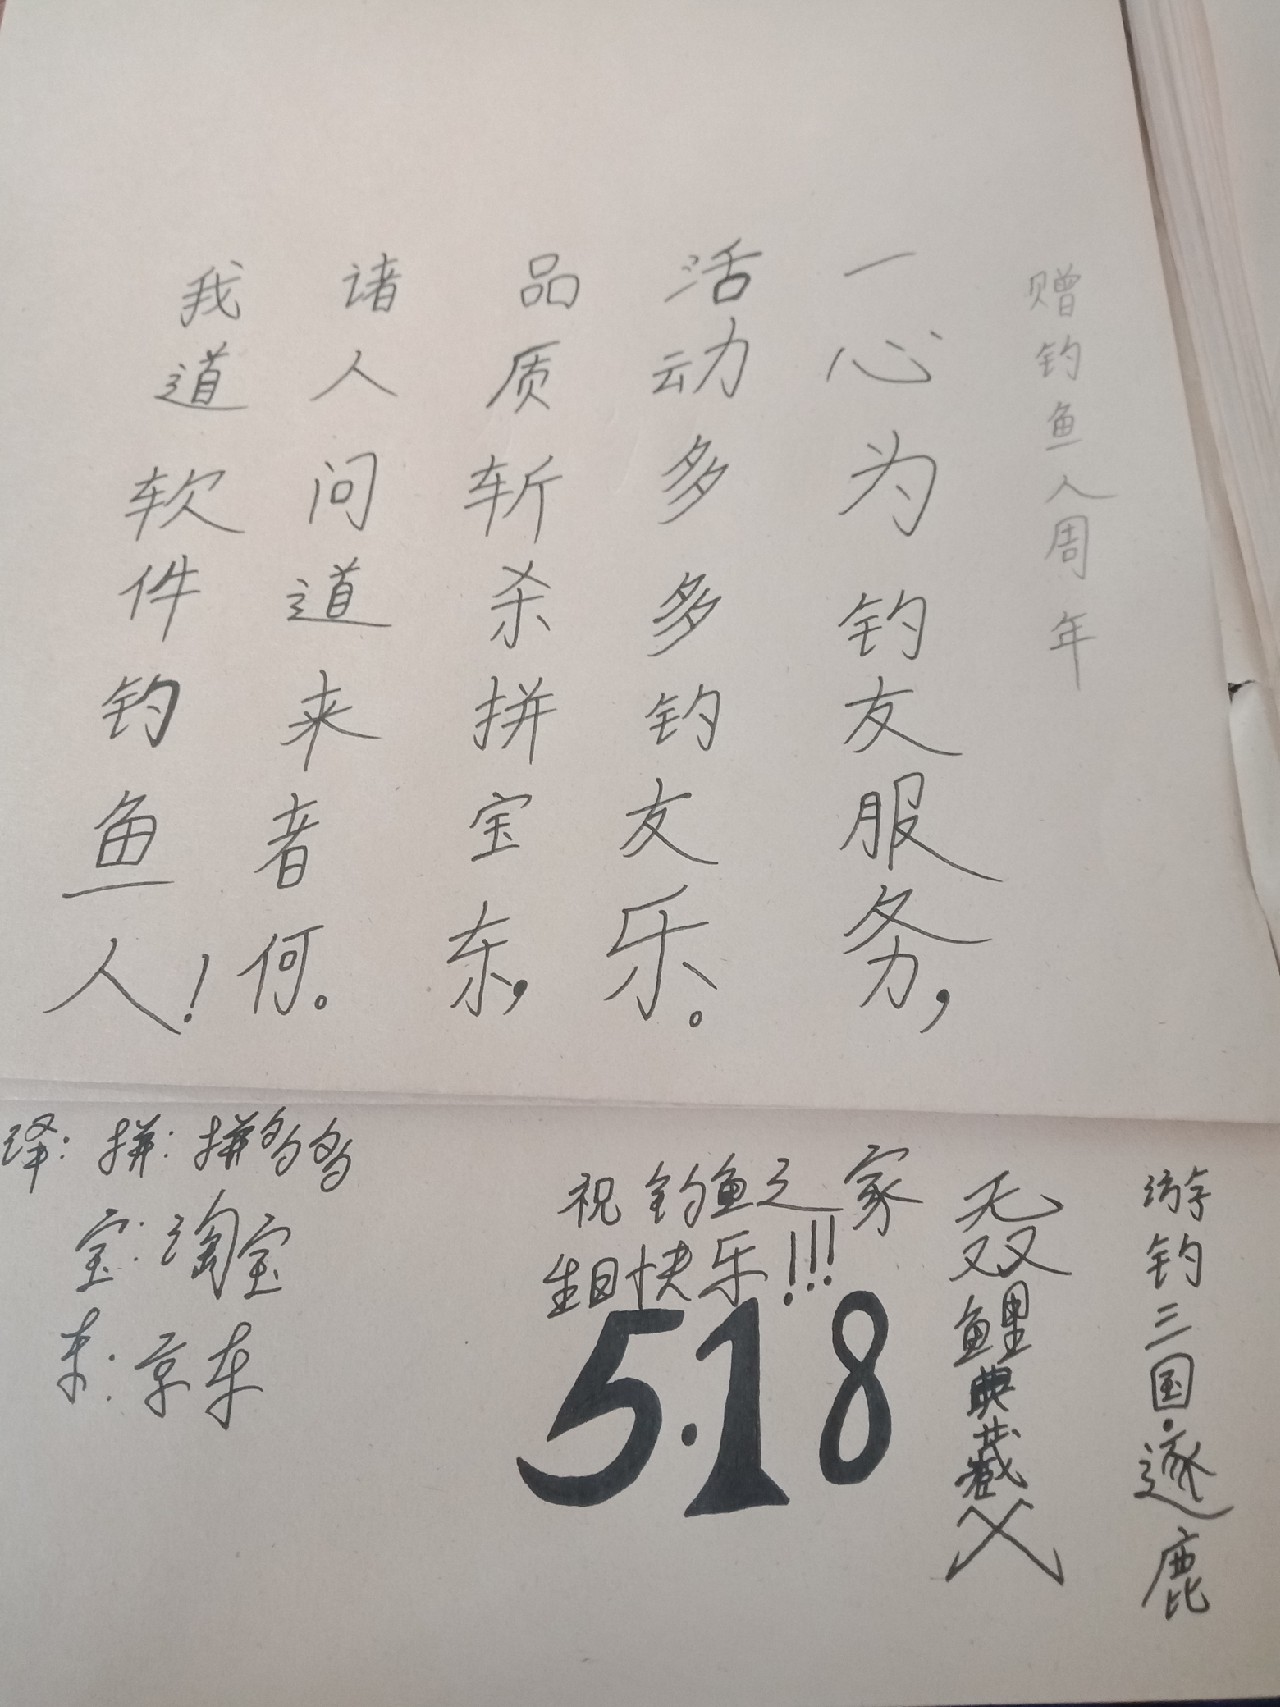 赠钓鱼人周年
一心为钓友服务，
活动多多钓友乐。
品质斩杀拼宝东，
诸人问道来者何。
我道软件钓鱼人！
游钓三国.逐鹿
无双鲤典藏
祝钓鱼之家
生日快乐!!!
5.18
译：拼：拼多多
宝：淘宝
东：京东